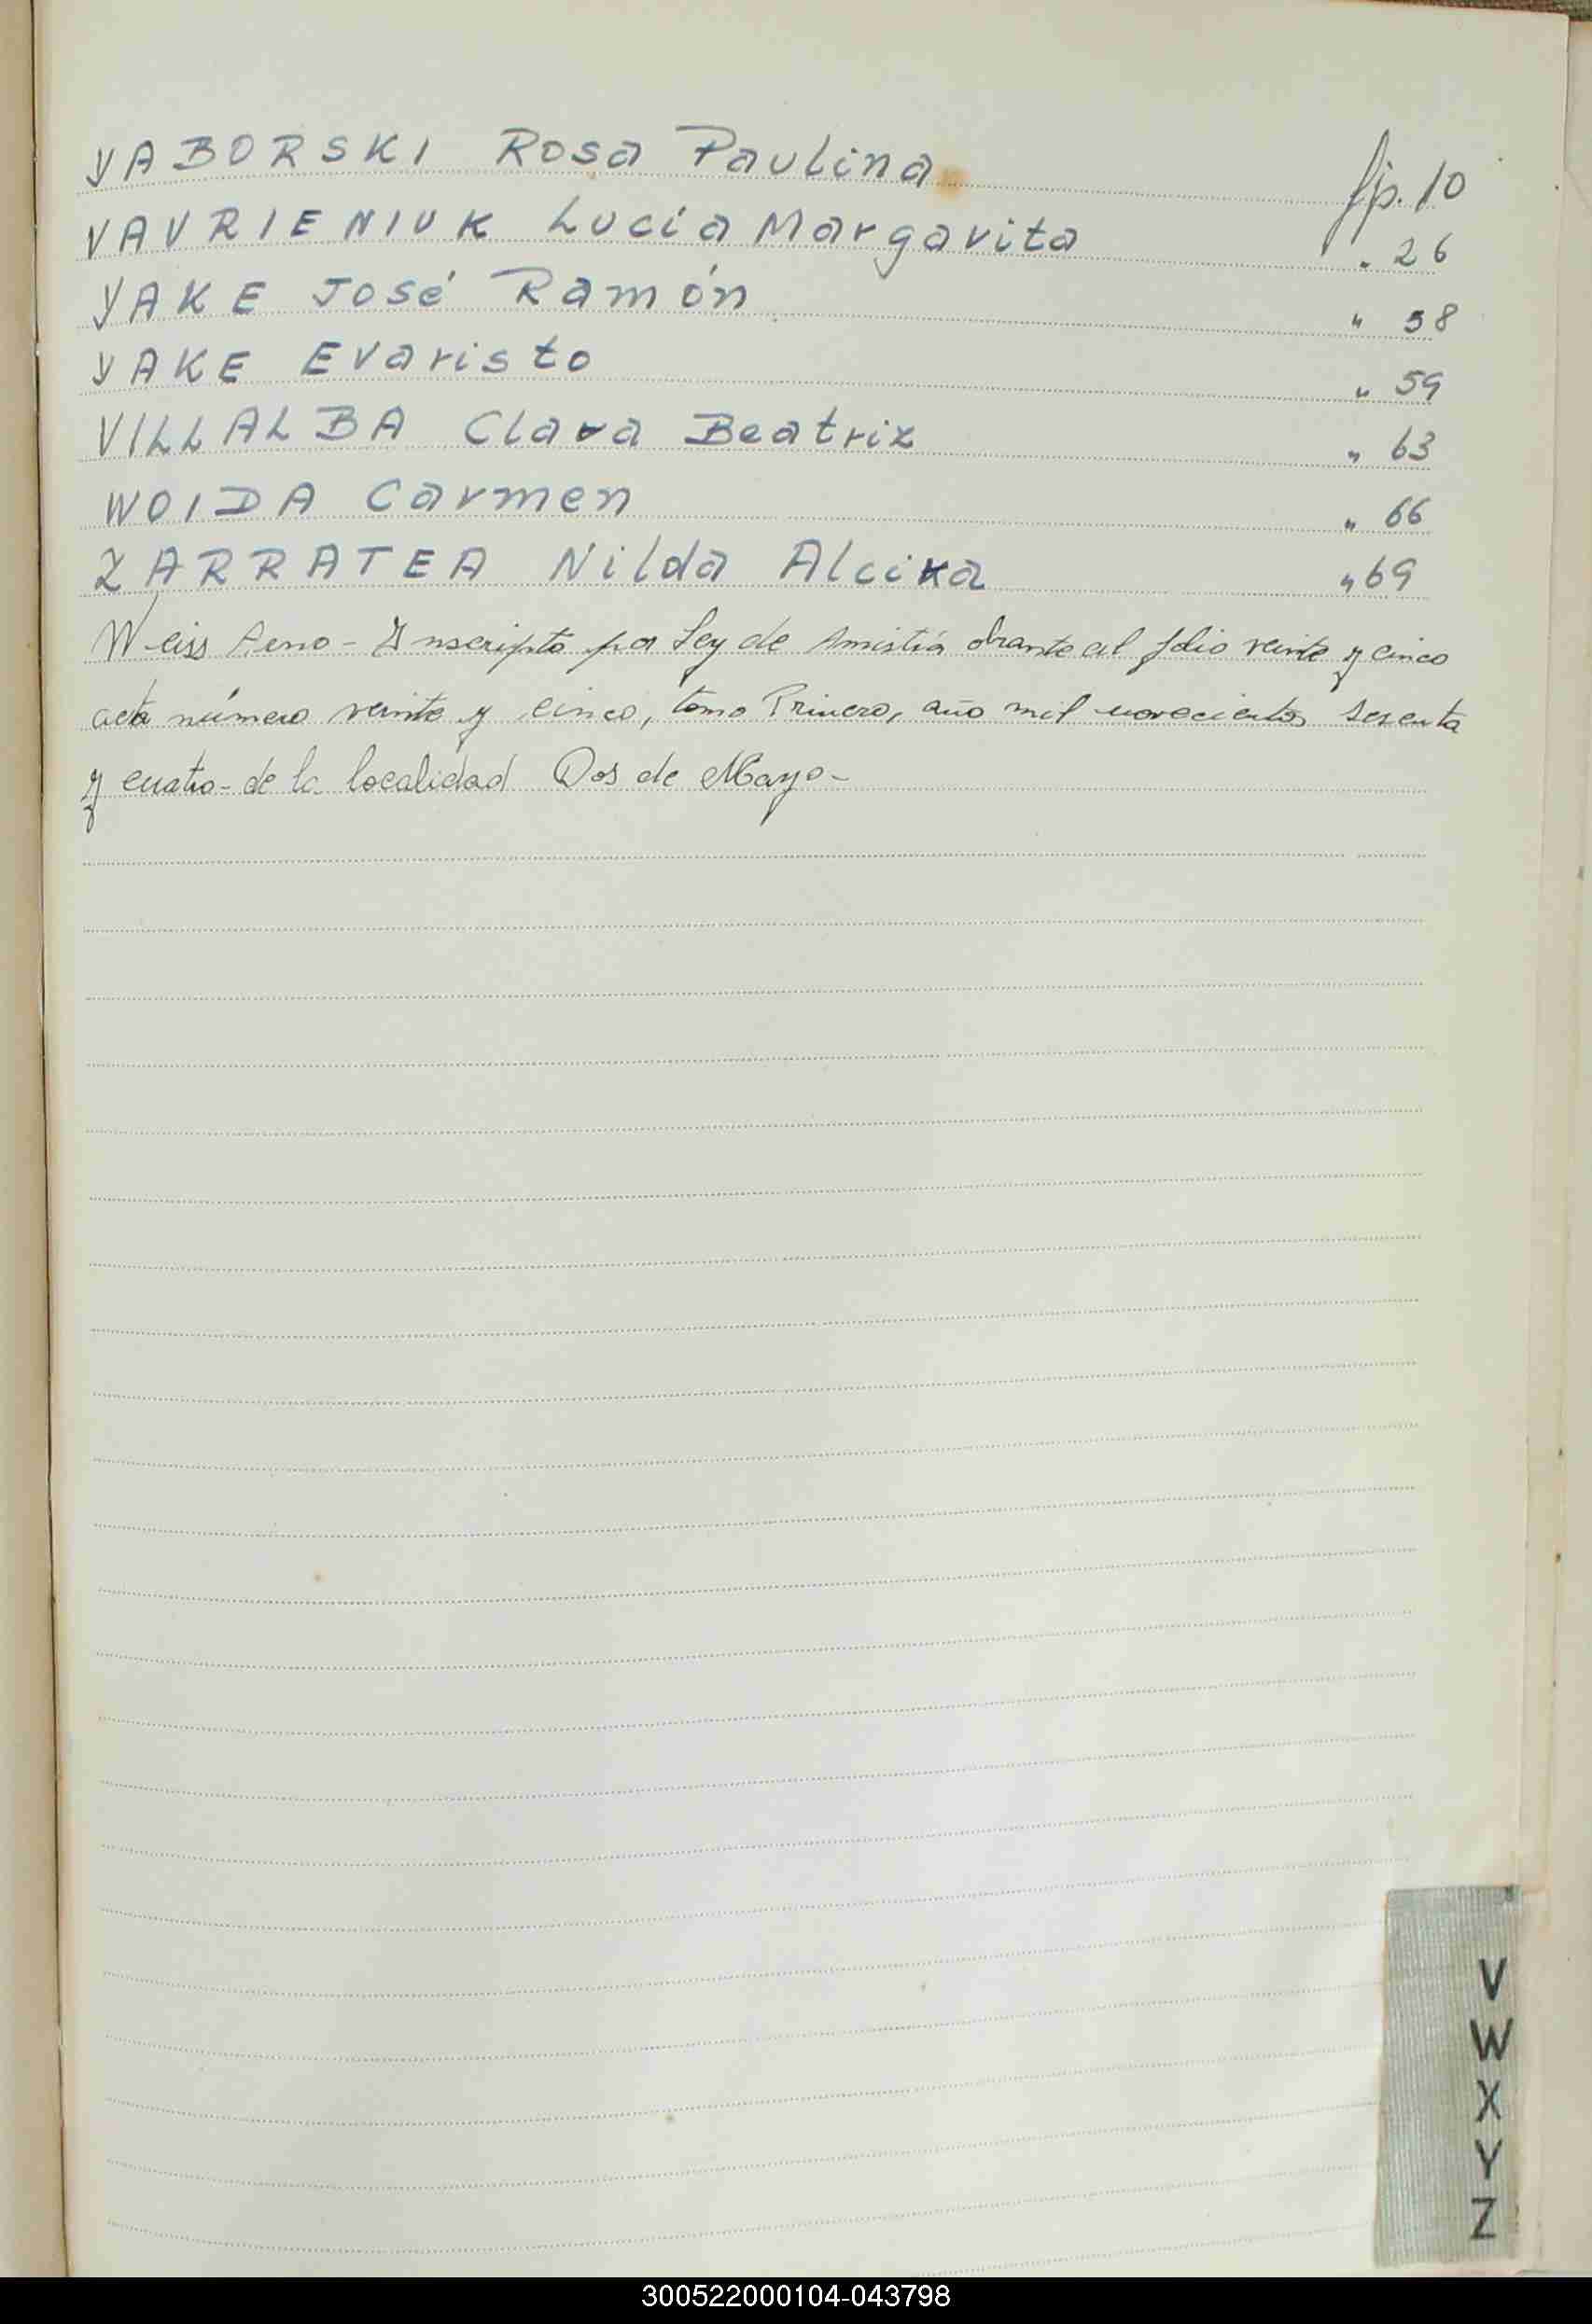 YABORSKI Rosa Paulina fjs. 10
VAVRIENIUK Lucía Margarita " 26
YAKE José Ramón " 58
YAKE Evaristo " 59
VILLALBA Clara Beatriz " 63
WOIDA Carmen " 66
ZARRATEA Nilda Alcira " 69
Weiss Arno - Inscripto por Ley de Amistía obrante al folio veinte y cinco
acta número veinte y cinco, tomo Primero, año mil novecientos sesenta
y cuatro - de la localidad Dos de Mayo -
V
W
X
Y
Z
300522000104-043798